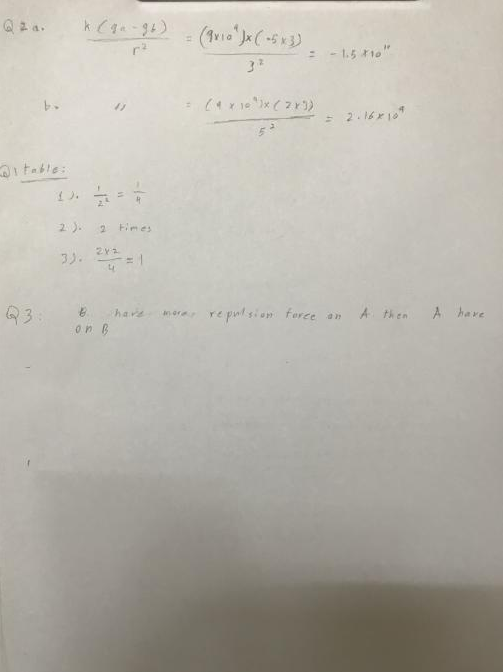 Q2a. k(qa-qb)/r² = (9x10⁹)x(-5x3)/3² = -1.5x10¹⁰
b. " = (9x10⁹)x(2x3)/5² = 2.16x10⁹
Q1 table:
1). 1/2² = 1/4
2). 2 times
3). 2x2/4 = 1
Q3: B have more repulsion force on A then A have
on B